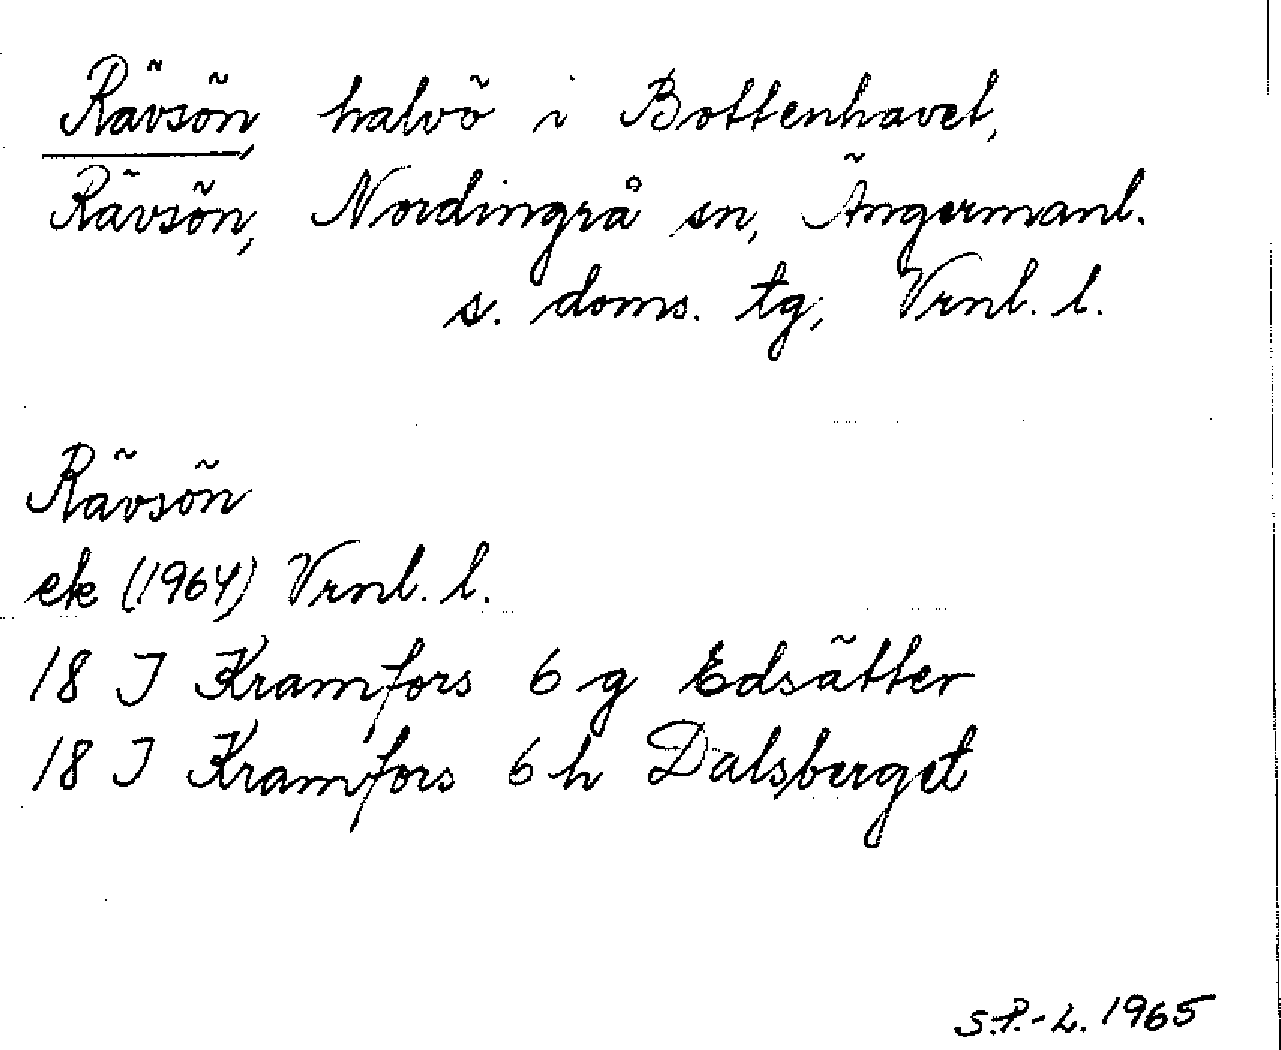 Rävsön, halvö i Bottenhavet,
Rävsön, Nordingrå sn, Ångermanl.
s. doms. tg, Vrnl. l.
Rävsön
ek (1964) Vrnl. l.
18 J Kramfors 6 g Edsätter
18 J Kramfors 6 h Dalsberget
S.P.-L. 1965